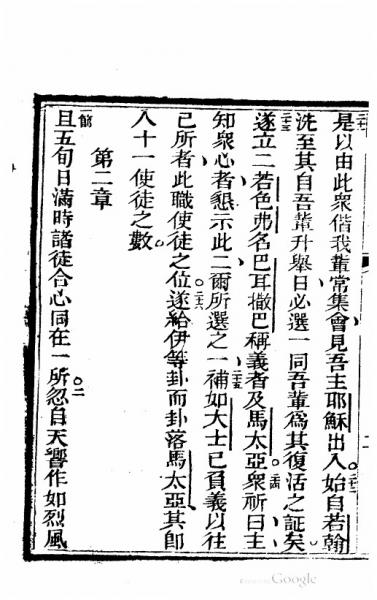 是以由此衆偕我輩常集會見吾主耶穌出入始自若翰
洗至其自吾輩升舉日必選一同吾輩爲其復活之証矣
遂立二若色弗名巴耳撒巴稱義者及馬太亞衆祈曰主
知衆心者懇示此二爾所選之一補如大士已負義以往
己所者此職使徒之位遂給伊等卦而卦落馬太亞其卽
入十一使徒之數
第二章
且五旬日滿時諸徒合心同在一所忽自天響作如烈風
二
Google